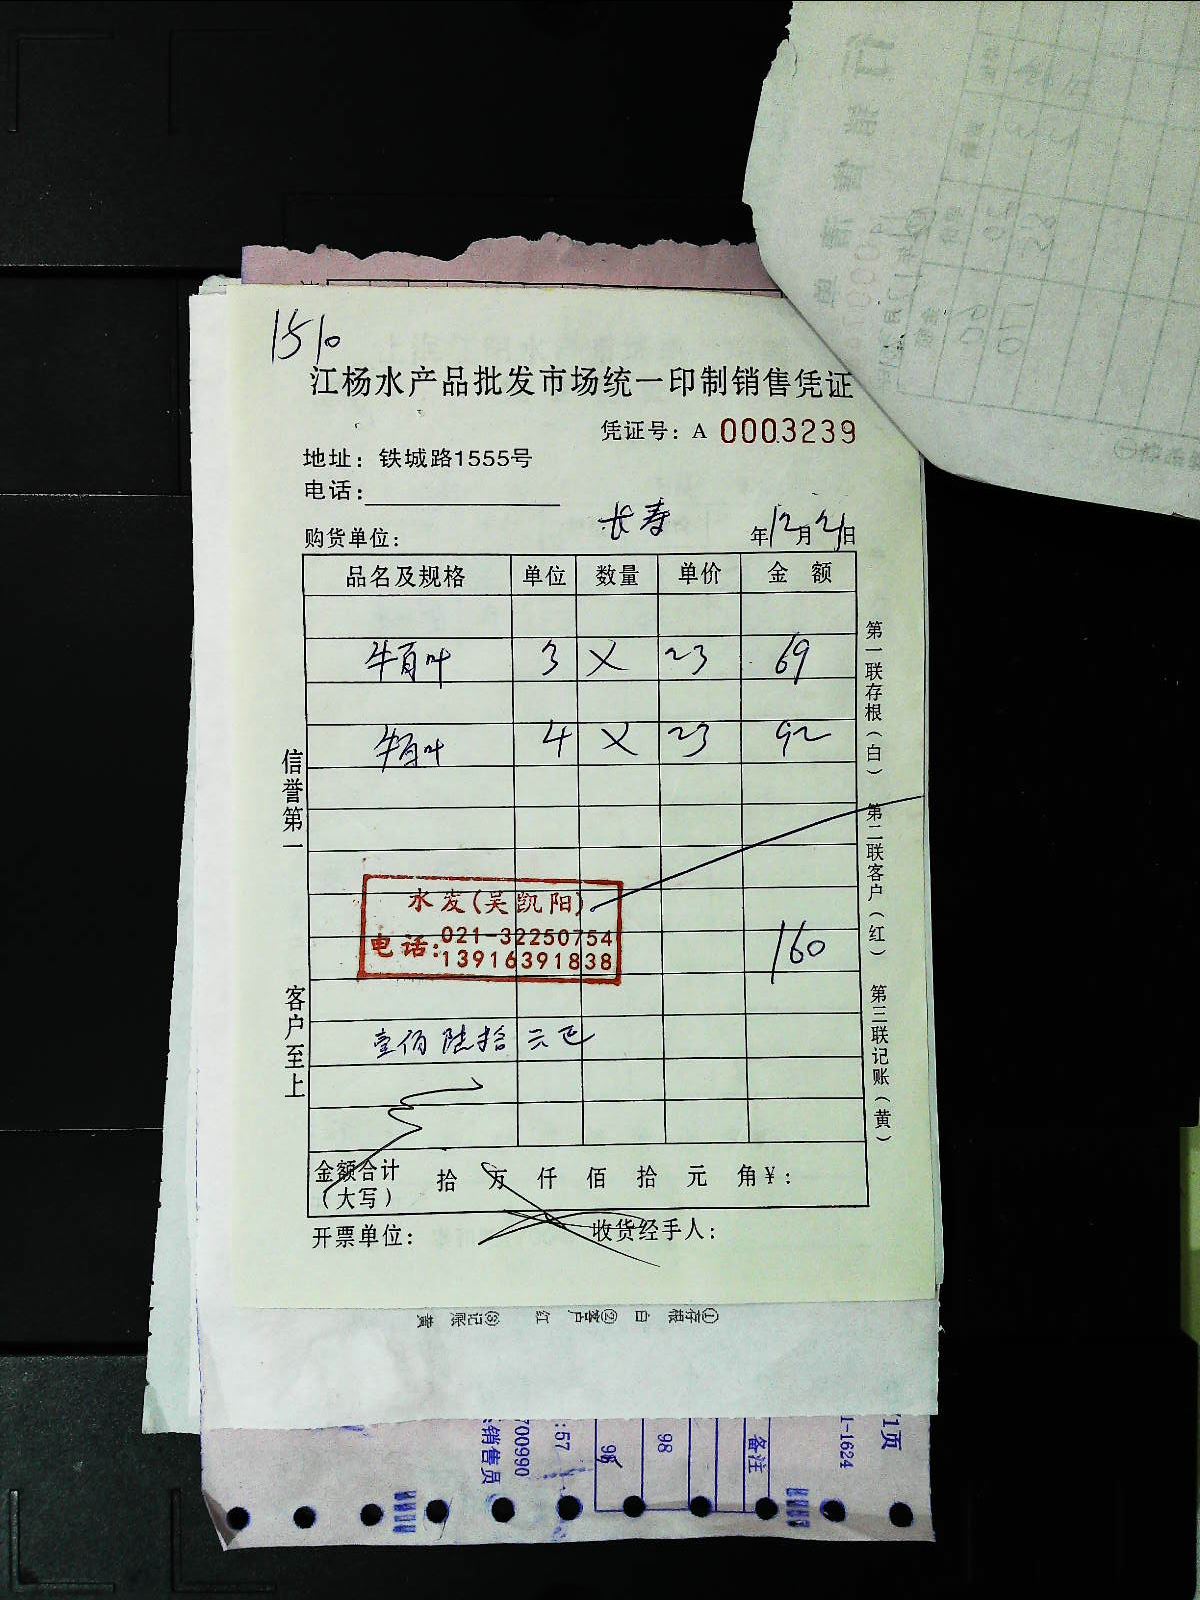 1510
江杨水产品批发市场统一印制销售凭证
凭证号：A 0003239
地址：铁城路1555号
电话：
购货单位： 长寿 年12月21日
品名及规格 单位 数量 单价 金额
牛百叶 3 × 23 69
牛百叶 4 × 23 92
水发(吴凯阳)
电话：021-32250754
13916391838
160
壹佰陆拾元正
金额合计
（大写） 拾 万 仟 佰 拾 元 角￥：
开票单位： 收货经手人：
信誉第一 客户至上
第一联存根（白） 第二联客户（红） 第三联记账（黄）
①存根 白 ②客户 红 ③记账 黄
/1页
1-1624
备注
98
:57
700990
销售员